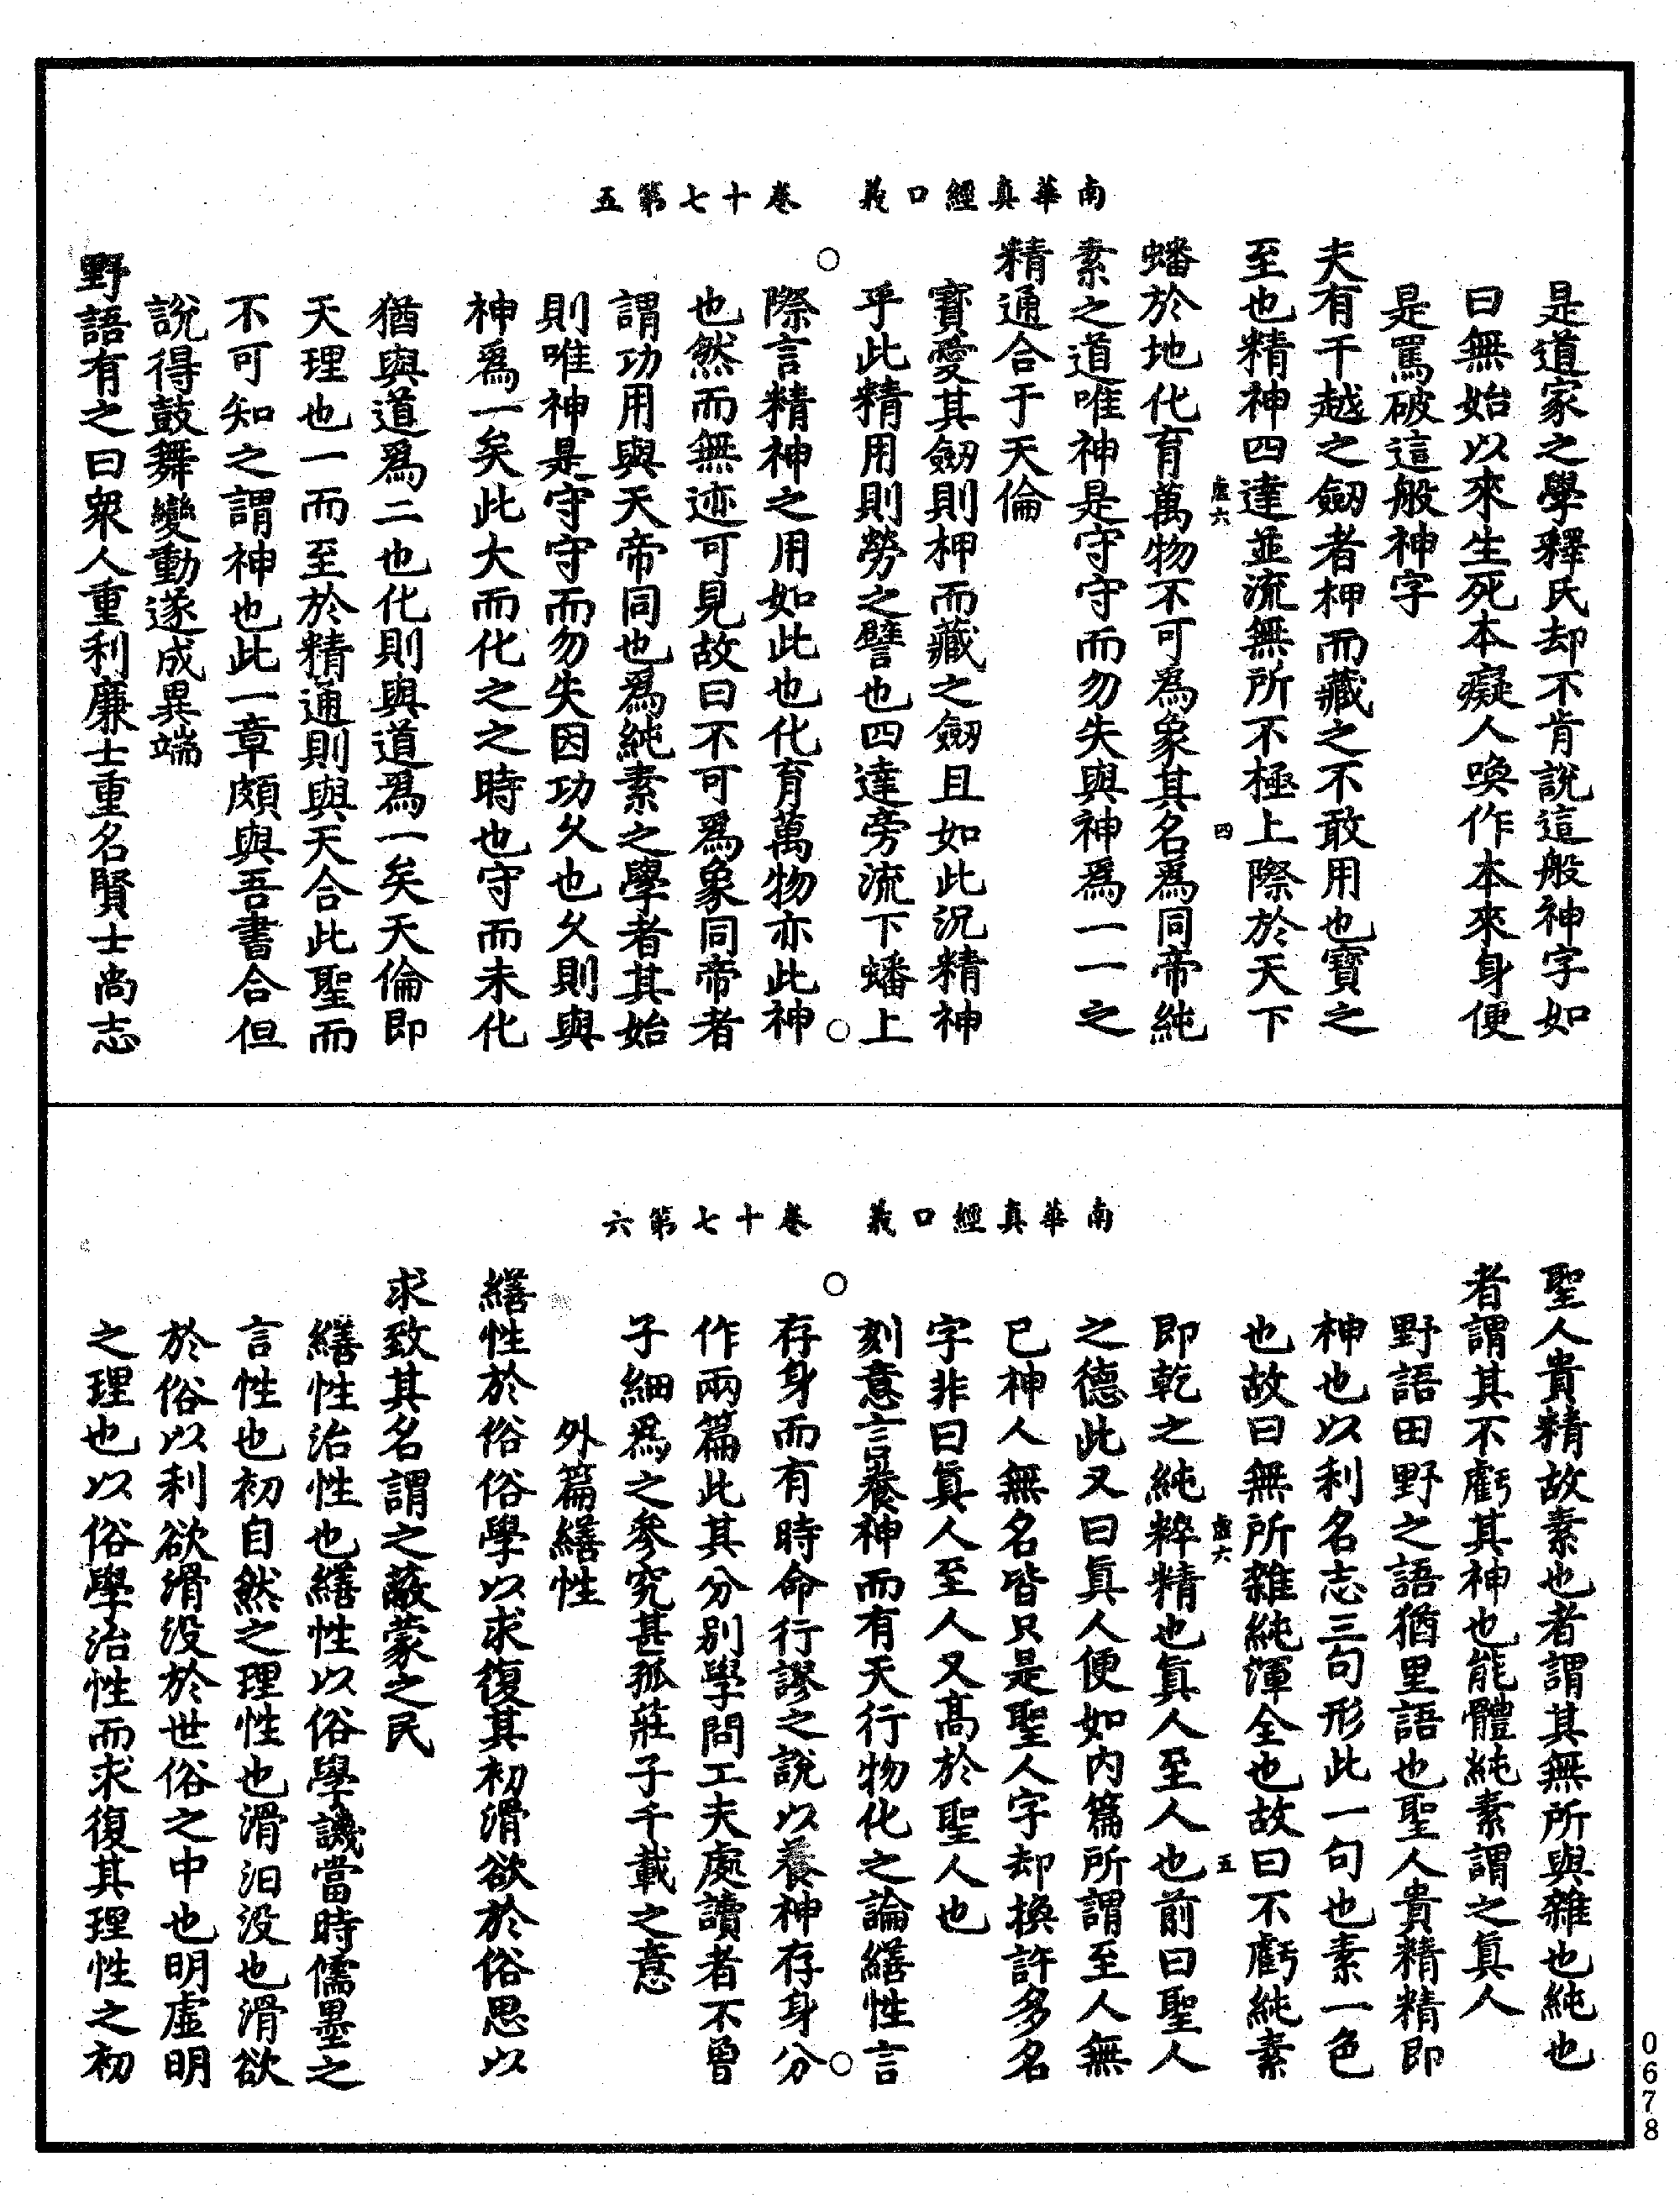 南華真經口義　卷十七第五
是道家之學釋氏却不肯說這般神字如
曰無始以來生死本癡人喚作本來身便
是罵破這般神字
夫有干越之劒者柙而藏之不敢用也寶之
至也精神四達並流無所不極上際於天下
虛六　四
蟠於地化育萬物不可爲象其名爲同帝純
素之道唯神是守守而勿失與神爲一一之
精通合于天倫
寶愛其劒則柙而藏之劒且如此況精神
乎此精用則勞之譬也四達旁流下蟠上
際言精神之用如此也化育萬物亦此神
也然而無迹可見故曰不可爲象同帝者
謂功用與天帝同也爲純素之學者其始
則唯神是守守而勿失因功久也久則與
神爲一矣此大而化之之時也守而未化
猶與道爲二也化則與道爲一矣天倫即
天理也一而至於精通則與天合此聖而
不可知之謂神也此一章頗與吾書合但
說得鼓舞變動遂成異端
野語有之曰衆人重利廉士重名賢士尚志
南華真經口義　卷十七第六
聖人貴精故素也者謂其無所與雜也純也
者謂其不虧其神也能體純素謂之真人
野語田野之語猶里語也聖人貴精精即
神也以利名志三句形此一句也素一色
也故曰無所雜純渾全也故曰不虧純素
虛六　五
即乾之純粹精也真人至人也前曰聖人
之德此又曰真人便如內篇所謂至人無
已神人無名皆只是聖人字却換許多名
字非曰真人至人又高於聖人也
刻意言養神而有天行物化之論繕性言
存身而有時命行謬之說以養神存身分
作兩篇此其分別學問工夫處讀者不曾
子細爲之參究甚孤莊子千載之意
外篇繕性
繕性於俗俗學以求復其初滑欲於俗思以
求致其名謂之蔽蒙之民
繕性治性也繕性以俗學譏當時儒墨之
言性也初自然之理性也滑汩沒也滑欲
於俗以利欲滑没於世俗之中也明虛明
之理也以俗學治性而求復其理性之初
0678